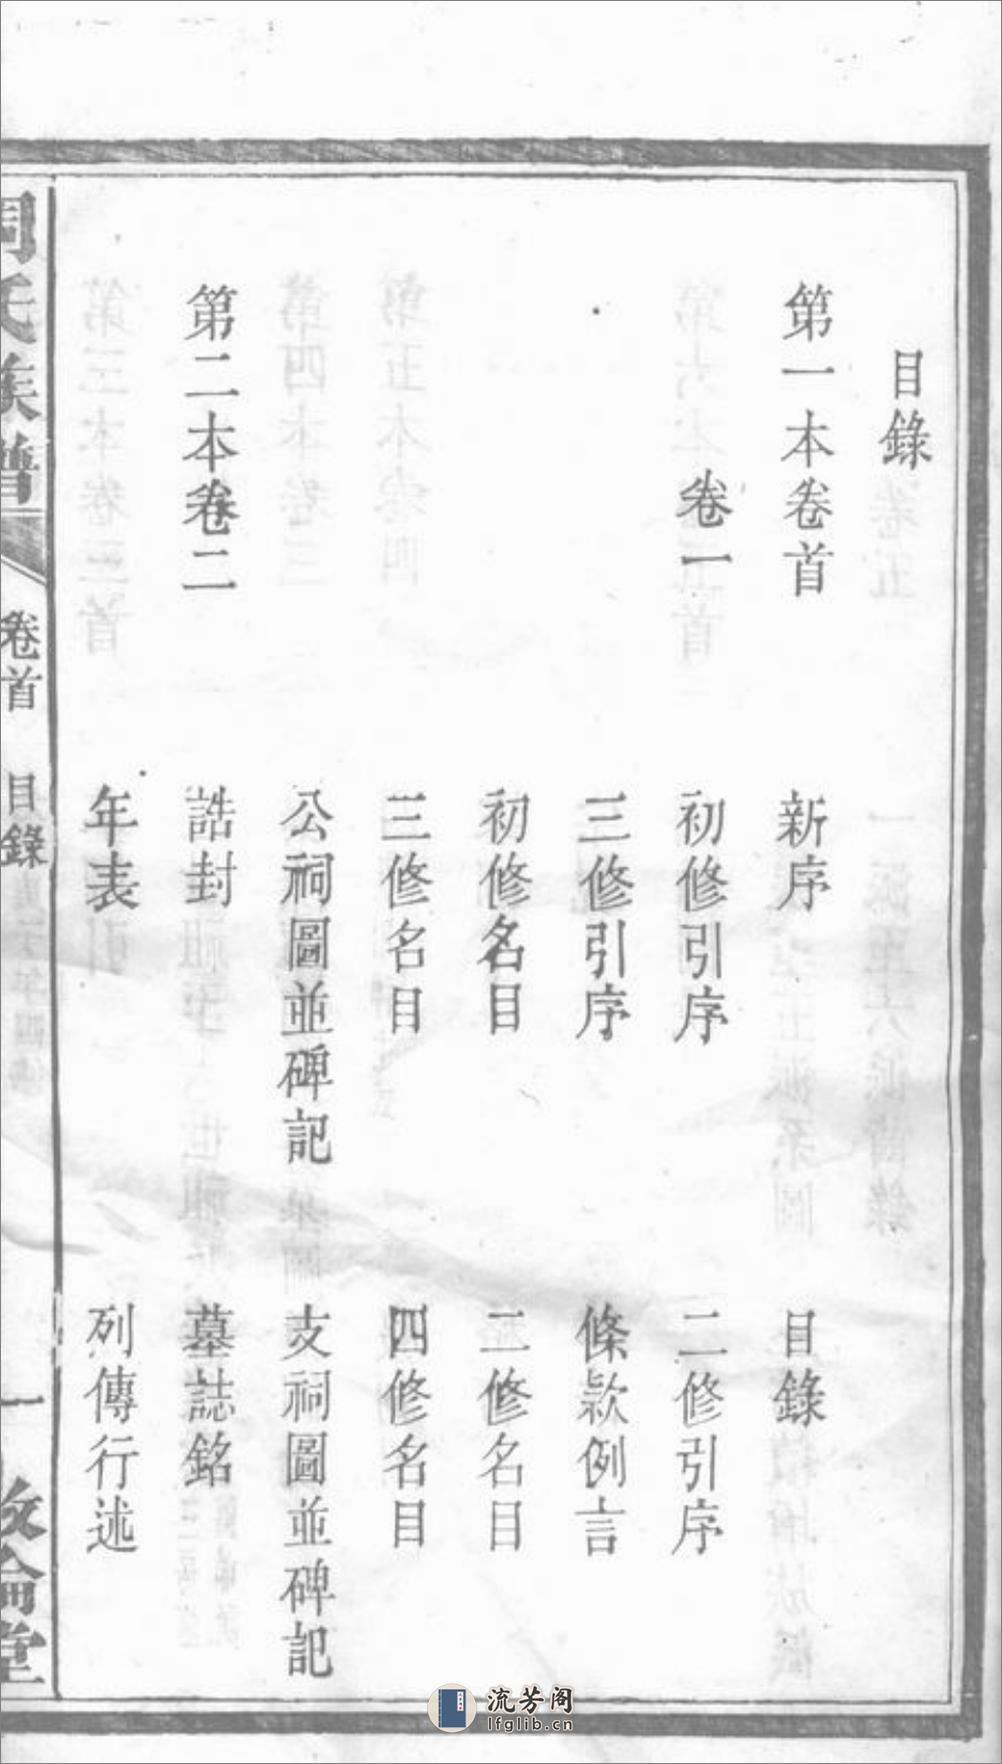 目錄
第一本卷首 新序 目錄
卷一 初修引序 二修引序
三修引序 條款例言
初修名目 二修名目
三修名目 四修名目
公祠圖並碑記 支祠圖並碑記
第二本卷二 誥封 墓誌銘
年表 列傳行述
周氏族譜 卷首 目錄 一 敦倫堂
流芳阁
lfglib.cn